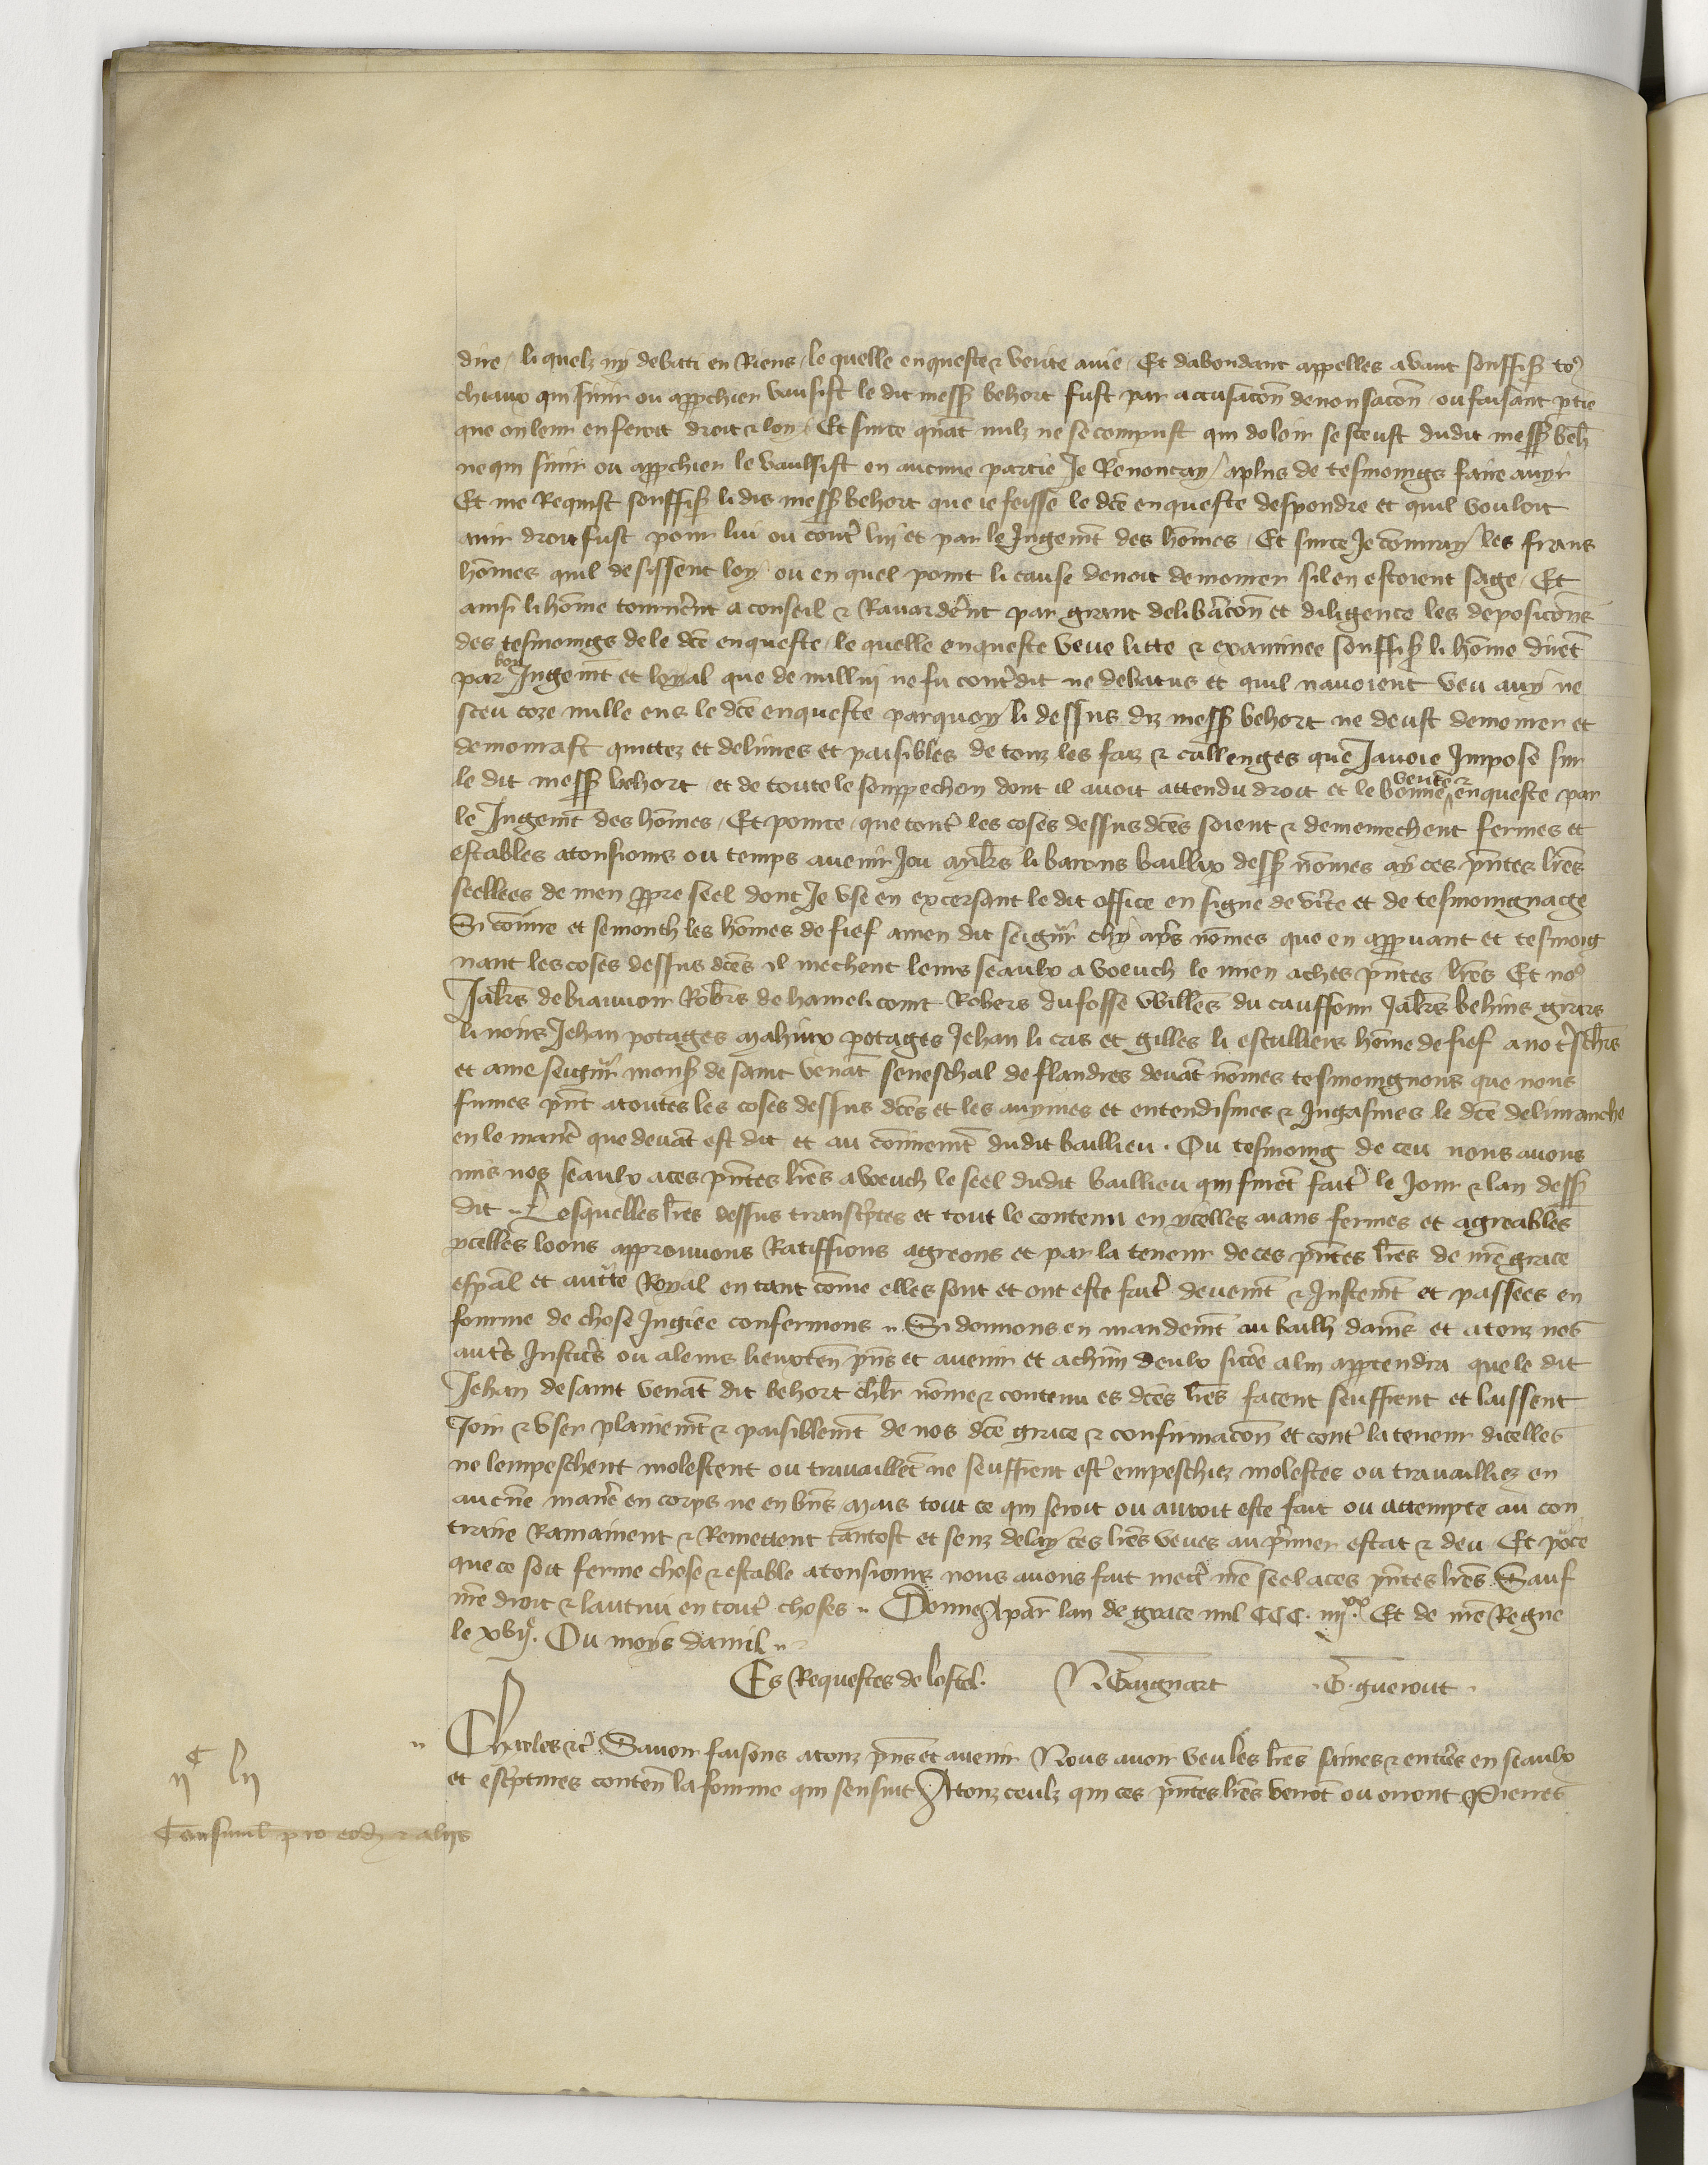 dire / li quelz ny debati en Riens / le quelle enqueste & verite auie / Et dabondant appelles auant souffis to9
chiaux qui suir ou approchier vausist le dit mess behort fust par accusacon denonsacon ou faisant ptie
que on leur en feroit droit & loy / Et surce quat nulz ne se compust qui doloir se sceust dudit mess beh
ne qui suir ou approchier le vaulsist en aucune partie Je Renoncay / aplus de tesmoings faire auyr
Et me Requist souffis li dis mess behort que ie feisse le dce enqueste despondre et quil vouloit
auir droit fust pour lui ou contr luy et par le Jugemt des homes / Et surce Je coniuray les frans
homes quil desissent loy / ou en quel point li cause deuoit demourer sil en estoient sage / Et
ainsi li home tournerent a conseil & Rauarderent par grant delibacon et diligence les deposicons
des tesmoings de le dce enqueste / le quelle enqueste veue litte & examinee souffis li home diret
par bon Jugemt et loyal que de nulluy ne fu contrdit ne debatus et quil nauoient veu auy ne
sceu coze nulle ens le dce enqueste parquoy li dessus diz mess behort ne deust demourer et
demourast quittez et deliures et paisibles de touz les faiz & callenges que Jauoie Impose sur
le dit mess behort / et de toute le souppechon dont il auoit attendu droit et le bonne verite & enqueste par
le Jugemt des homes / Et pource / que toutr les coses dessus dces soient & demeurechent fermes et
estables atousiours ou temps auenir Jou li barons baillix dess nomes ay ces pntes lres
seellees de men ppre seel dont Je vse en excersant le dit office en signe de vite et de tesmoingnage
Si comire et semonch les homes de fief amen dit seigur chy aprs nomes que en appruuant et tesmoig
nant les coses dessus dces il mechent leurs seaulx avoeuch le mien aches pntes lres Et no9
Jakes de biauuoir Robrs de hamelicourt Robers du fosse Willes du cauffour Jakes behins grars
li noirs Jehan potages Mahiux potages Jehan li cras et gilles li esculliers home de fief a notr
et ame seigur mons de saint venat seneschal de flandres deuat nomes tesmoingnons que nous
fumes pnt atoutes les coses dessus dces et les auymes et entendismes & Jugasmes le dce deliuranche
en le manr que deuat est dit et au coniuremt dudit baillieu . Ou tesmoing de ceu nous auons
mis nos seaulx aces pntes lres aweuch le seel dudit baillieu qui furet faitr le Jour & lan dess
dit .. Lesquelles lres dessus transcptes et tout le contenu en ycelles aians fermes et agreables
ycelles loons approuuons Ratiffions agreons et par la teneur de ces pntes lres de nre grace
espal et auctte Royal en tant come elles sont et ont este faitr deuemt & Justemt et passees en
fourme de chose Jugiee confermons .. Si donnons en mandemt au bailli damis et atouz nos
autrs Justicrs ou aleurs lieuxten pns et auenir et achun deulx sicoe alui apptendra que le dit
Jehan de saint venat dit behort chlr nome & contenu es dces lres facent seuffrent et laissent
Joir & vser plainemt & paisiblemt de nos dce grace & confirmacon et contr la teneur dicelles
ne lempeschent molestent ou trauaillet ne seuffrent estr empeschiez molestes ou trauailliez en
aucune manre en corps ne en bns Mais tout ce qui seroit ou auroit este fait ou attempte au con
traire Ramainent & Remettent tantost et senz delay ces lres veues au pmier estat & deu Et poce
que ce soit ferme chose & estable atousiours nous auons fait mectr nre seel aces pntes lres Sauf
nre droit & lautrui en toutr choses .. Donne A par lan de grace mil CCC . iiij xx . Et de nre Regne
le xvije . Ou moys dauril ..
Es Requestes de lostel . N Gaignart . G . guerout .
Charles &c Sauoir faisons atouz pns et auenir Nous auoir veu les lres saines & entres en seaulx
et escptures conten la fourme qui sensuit Atouz ceulz qui ces pntes lres verrot ou orront Pierres
ij C lij
Consimil pro eod & alijs